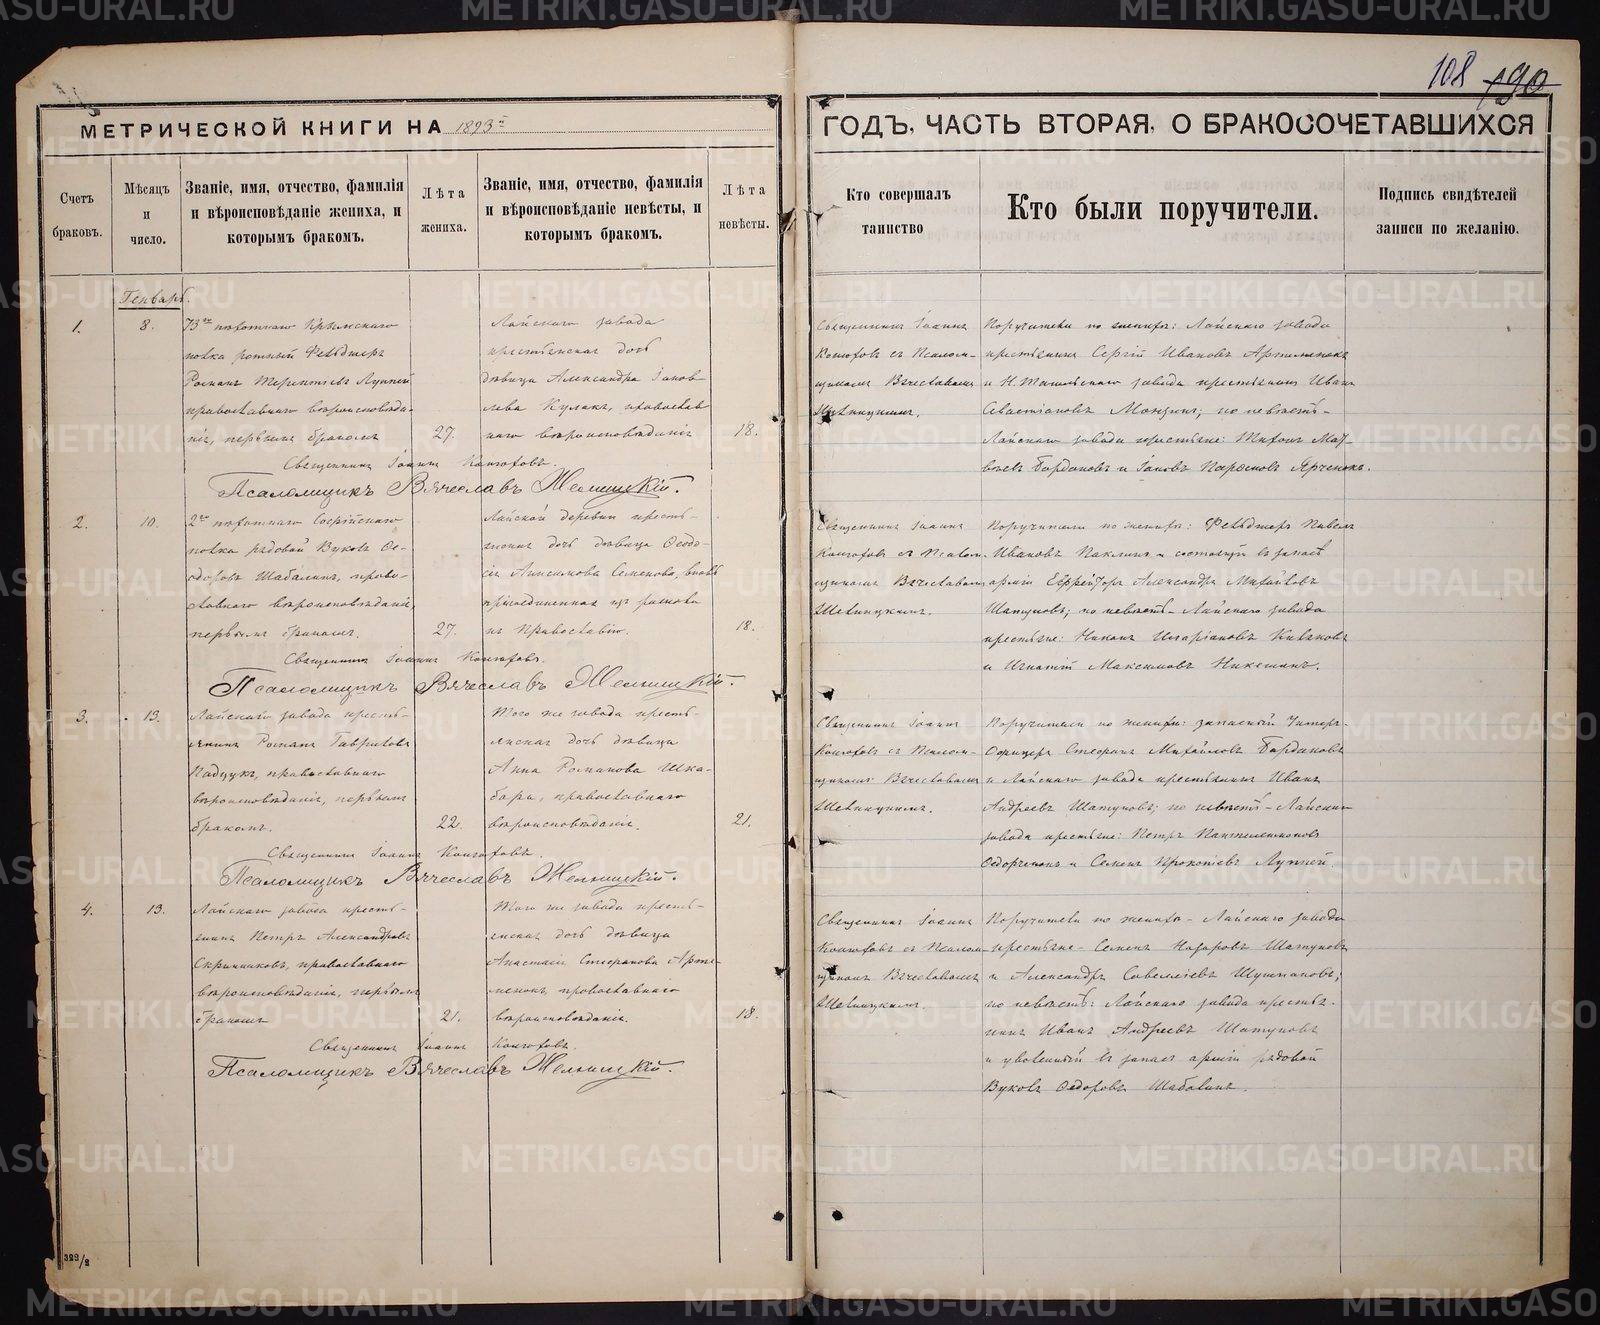 108 190
МЕТРИЧЕСКОЙ КНИГИ НА 1893й
ГОДЪ, ЧАСТЬ ВТОРАЯ, О БРАКОСОЧЕТАВШИХСЯ
Счетъ браковъ.
Мѣсяцъ и число.
Званіе, имя, отчество, фамилія
и вѣроисповѣданіе жениха, и
которымъ бракомъ.
Лѣта жениха.
Званіе, имя, отчество, фамилія
и вѣроисповѣданіе невѣсты, и
которымъ бракомъ.
Лѣта невѣсты.
Кто совершалъ
таинство
Кто были поручители.
Подпись свидѣтелей
записи по желанію.
Генварь.
1.
8.
73го пѣхотнаго Крымскаго
полка ротный Фельдшеръ
Романъ Терентьевъ Луппей
православнаго вѣроисповѣда-
нія, первымъ бракомъ
27.
Лайскаго завода
крестьянская дочь
дѣвица Александра Іаков
лева Кулакъ, православ
наго вѣроисповѣданія
18.
Священникъ Іоаннъ
съ Псалом-
щикомъ Вячеславомъ
Поручители по женихѣ: Лайскаго завода
крестьянинъ Сергій Ивановъ Артеменокъ
и Н. Тагильскаго завода крестьянинъ Иванъ
Севастіановъ по невѣстѣ-
Лайскаго завода крестьяне: Тихонъ Мат-
вѣевъ Бордановъ и Іаковъ Ярченокъ.
Священникъ Іоаннъ
Псаломщикъ Вячеславъ
2.
10.
2го пѣхотнаго Софійскаго
полка рядовой Вуколъ Ѳе-
одоровъ Шабалинъ, право-
славнаго вѣроисповѣданія,
первымъ бракомъ.
27.
Лайской деревни кресть-
янская дочь дѣвица Ѳеодо-
сія Анисимова Семенова, вновь
присоединенная изъ раскола
къ Православію.
18.
Священникъ Іоаннъ
съ Псалом-
щикомъ Вячеславомъ
Поручители по женихѣ: Фельдшеръ Павелъ
Ивановъ Паклинъ и состоящій въ запасѣ
арміи Ефрейторъ Александръ Михайловъ
Шатуновъ; по невѣстѣ - Лайскаго завода
крестьяне: Никонъ
и Игнатій Максимовъ Никешинъ.
Священникъ Іоаннъ
Псаломщикъ Вячеславъ
3.
13.
Лайскаго завода кресть-
янинъ Романъ Гавриловъ
православнаго
вѣроисповѣданія, первымъ
бракомъ.
22.
Того же завода кресть-
янская дочь дѣвица
Анна Романова Шка-
бара, православнаго
вѣроисповѣданія.
21.
Священникъ Іоаннъ
съ Псалом-
щикомъ Вячеславомъ
Поручители по женихѣ: запасный Унтеръ-
Офицеръ Стефанъ Михайловъ Бордановъ
и Лайскаго завода крестьянинъ Иванъ
Андреевъ Шатуновъ; по невѣстѣ - Лайскаго
завода крестьяне: Петръ Пантелеимоновъ
Ѳедорченокъ и Семенъ Прокопіевъ Луппей.
Священникъ Іоаннъ
Псаломщикъ Вячеславъ
4.
13.
Лайскаго завода кресть-
янинъ Петръ Александровъ
Скринниковъ, православнаго
вѣроисповѣданія, первымъ
бракомъ
21.
Того же завода кресть-
янская дочь дѣвица
Анастасія Стефанова Арте-
менокъ, православнаго
вѣроисповѣданія.
18.
Священникъ Іоаннъ
съ Псалом-
щикомъ Вячеславомъ
Поручители по женихѣ - Лайскаго завода
крестьяне - Семенъ Назаровъ Шатуновъ
и Александръ Савеліевъ
по невѣстѣ: Лайскаго завода крестья-
нинъ Иванъ Андреевъ Шатуновъ
и уволенный въ запасъ арміи рядовой
Вуколъ Ѳедоровъ Шабалинъ.
Священникъ Іоаннъ
Псаломщикъ Вячеславъ
322/2
METRIKI.GASO-URAL.RU